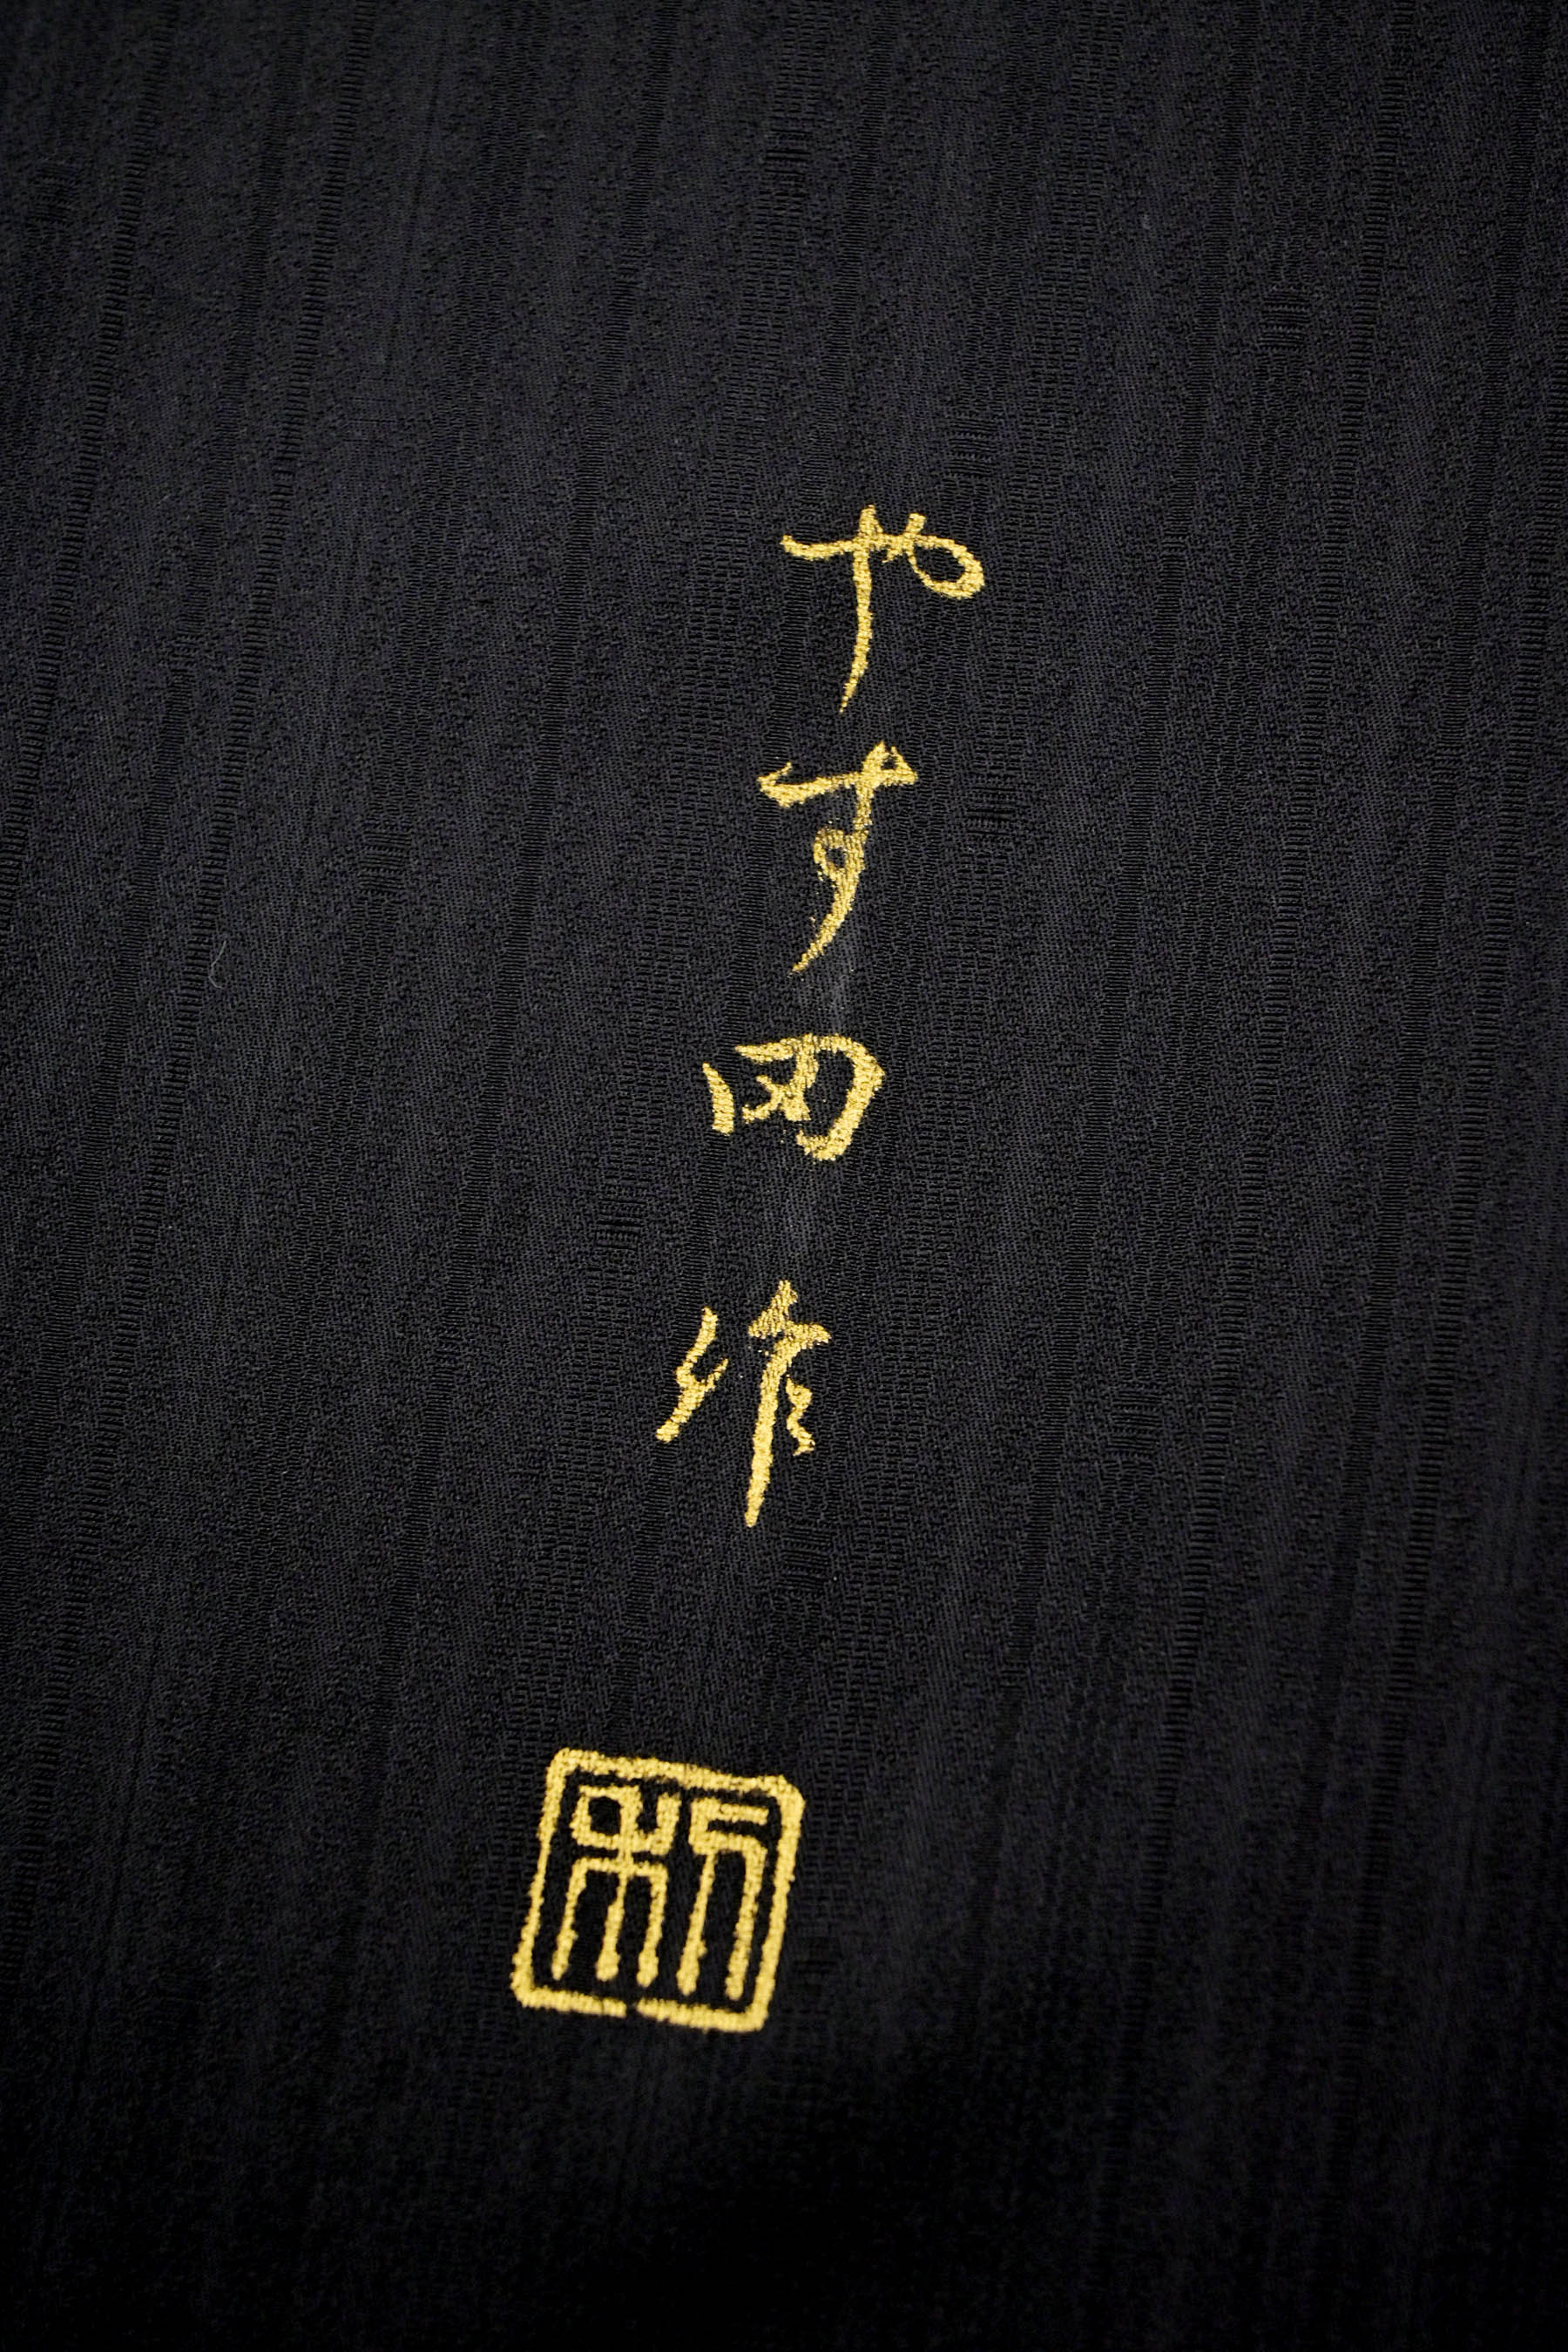 やす田作